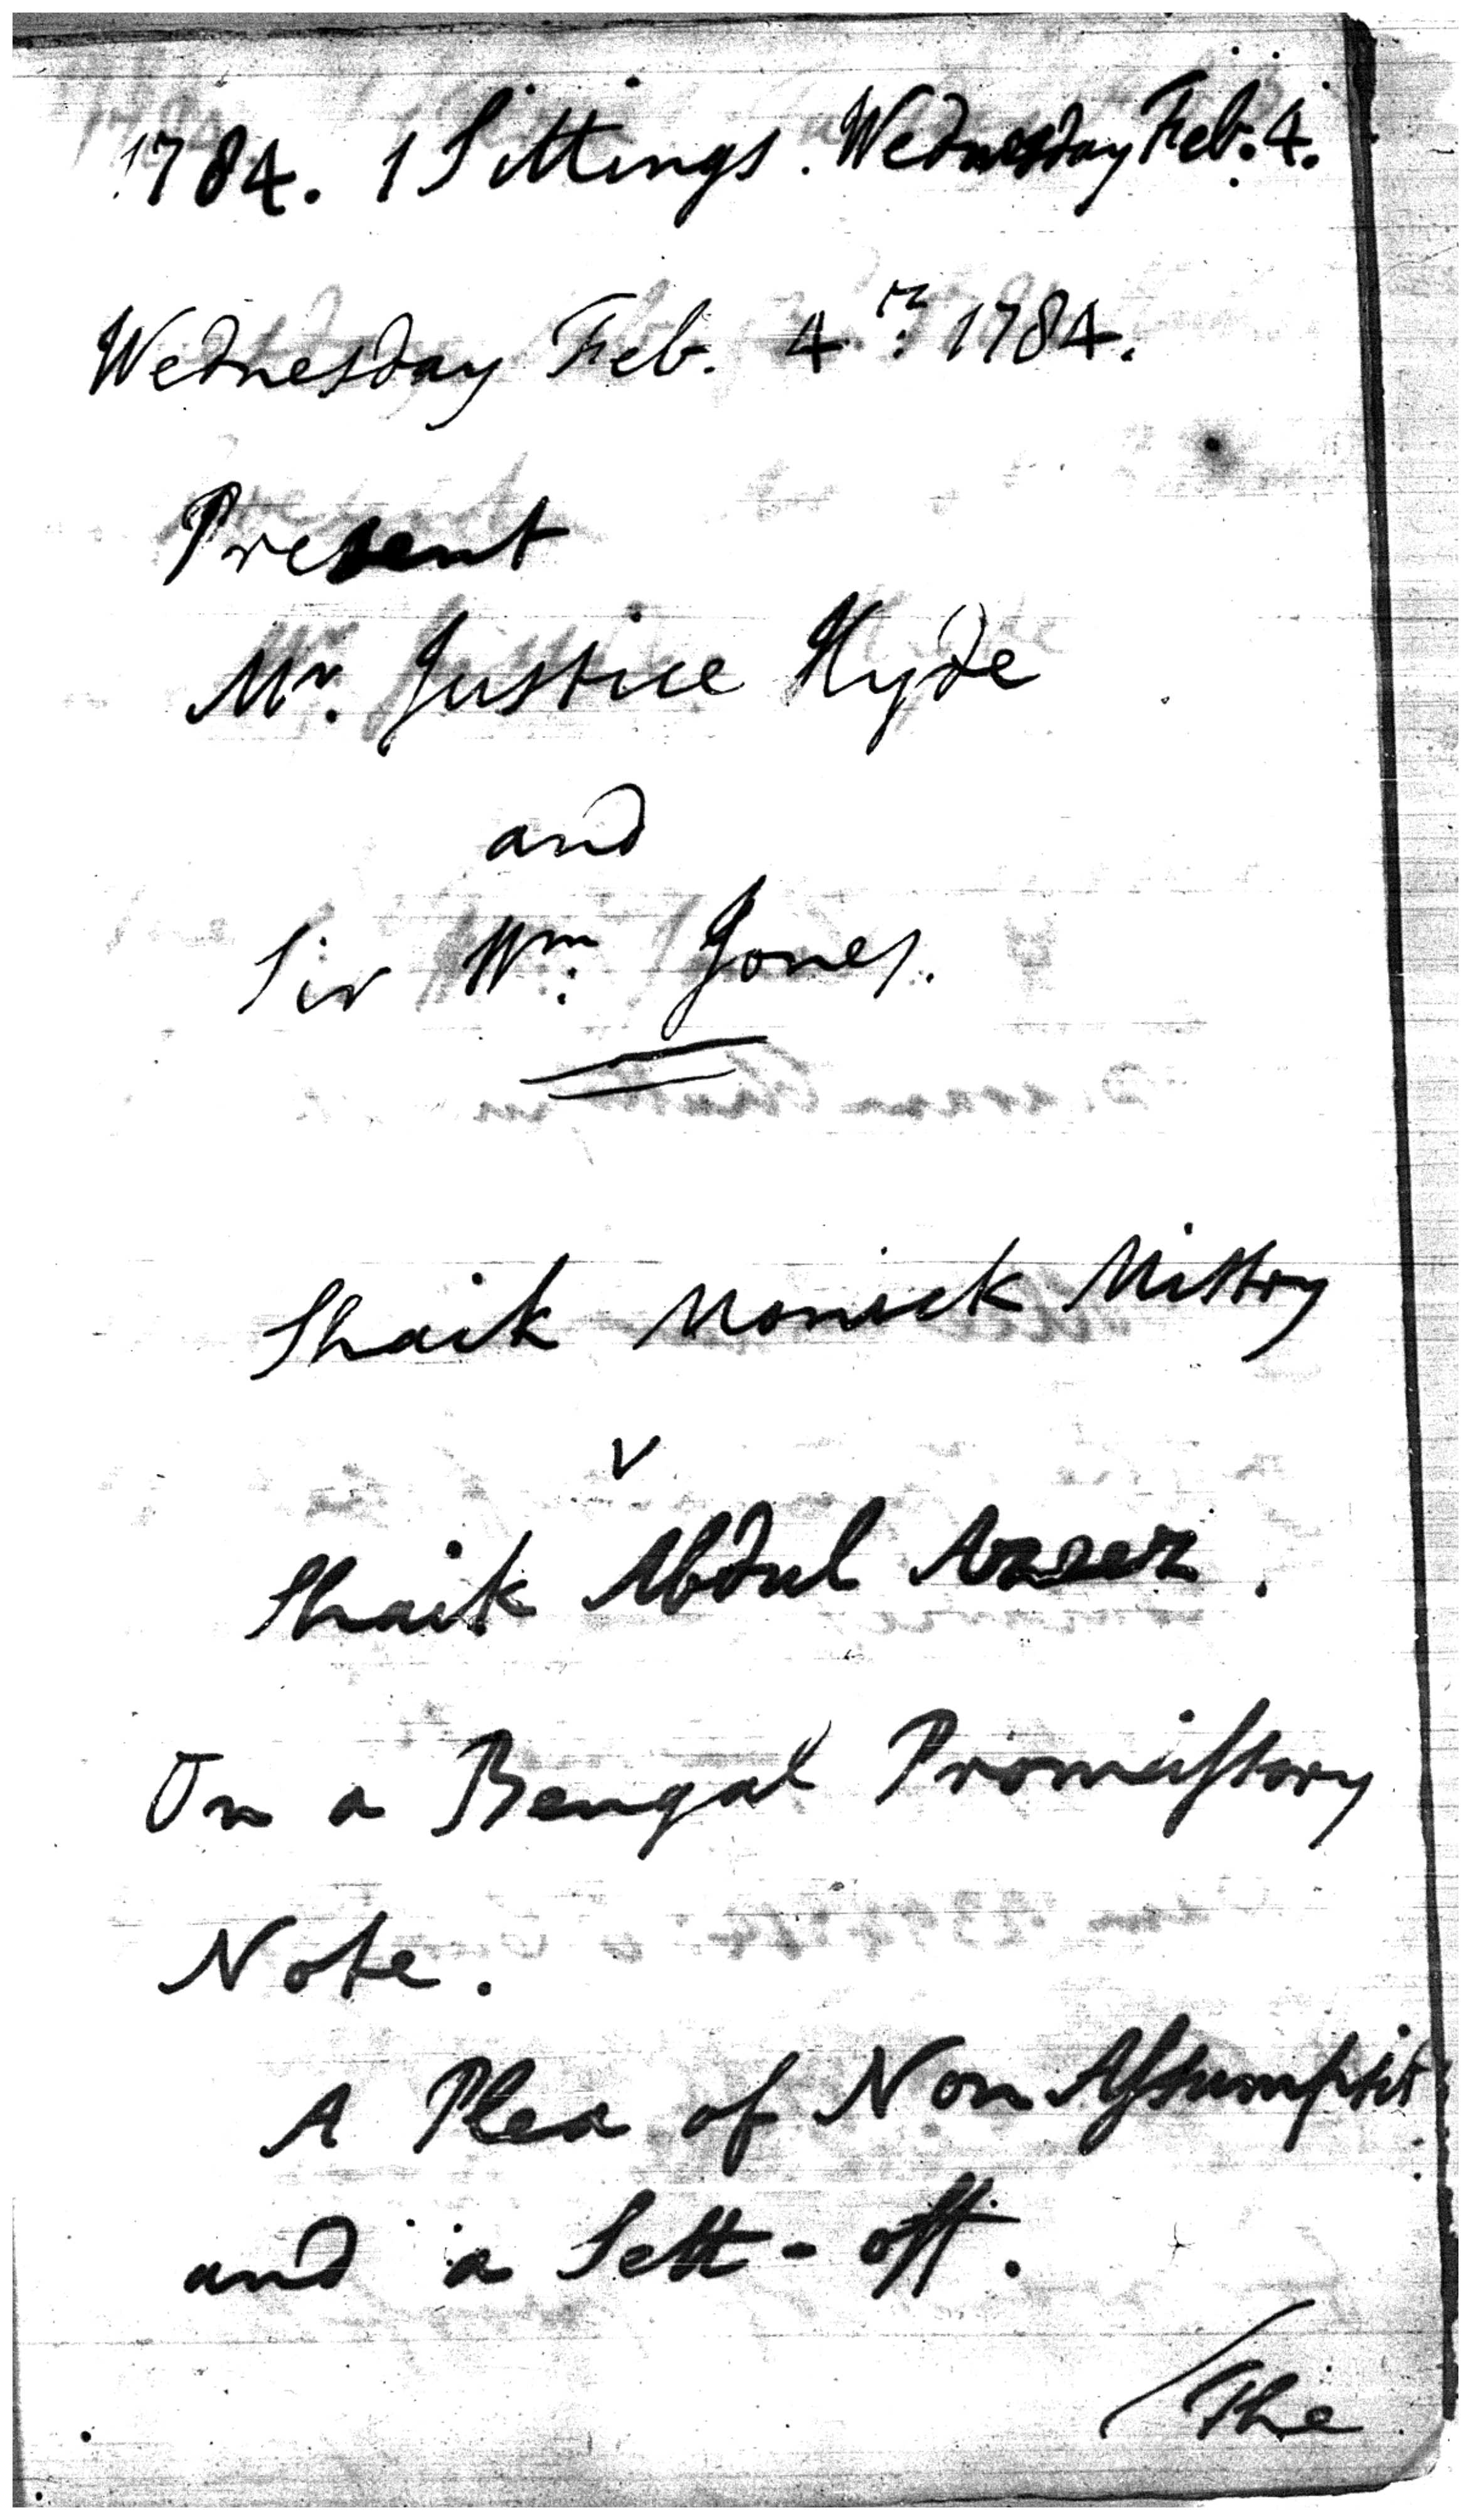 1784. 1 Sittings. Wednesday Feb. 4.
Wednesday Feb. 4th. 1784.
Present
Mr. Justice Hyde
and
Sir Wm. Jones.
Shaik Monick Mistry
v
Shaik Abdul Azeez.
On a Bengal Promissory
Note.
A Plea of Non Assumpsit
and a Sett-off.
/The